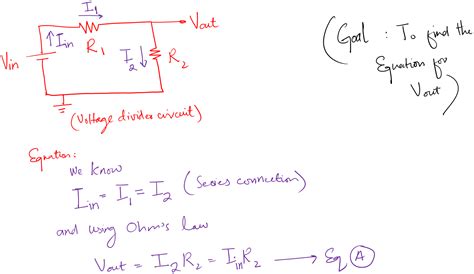 I1
Vout
Iin
R1
I2
R2
Vin
(Voltage divider circuit)
(Goal : To find the
Equation for
Vout)
Equation:
We know
Iin = I1 = I2 (Series connection)
and using Ohm's law
Vout = I2 R2 = Iin R2 → Eq A